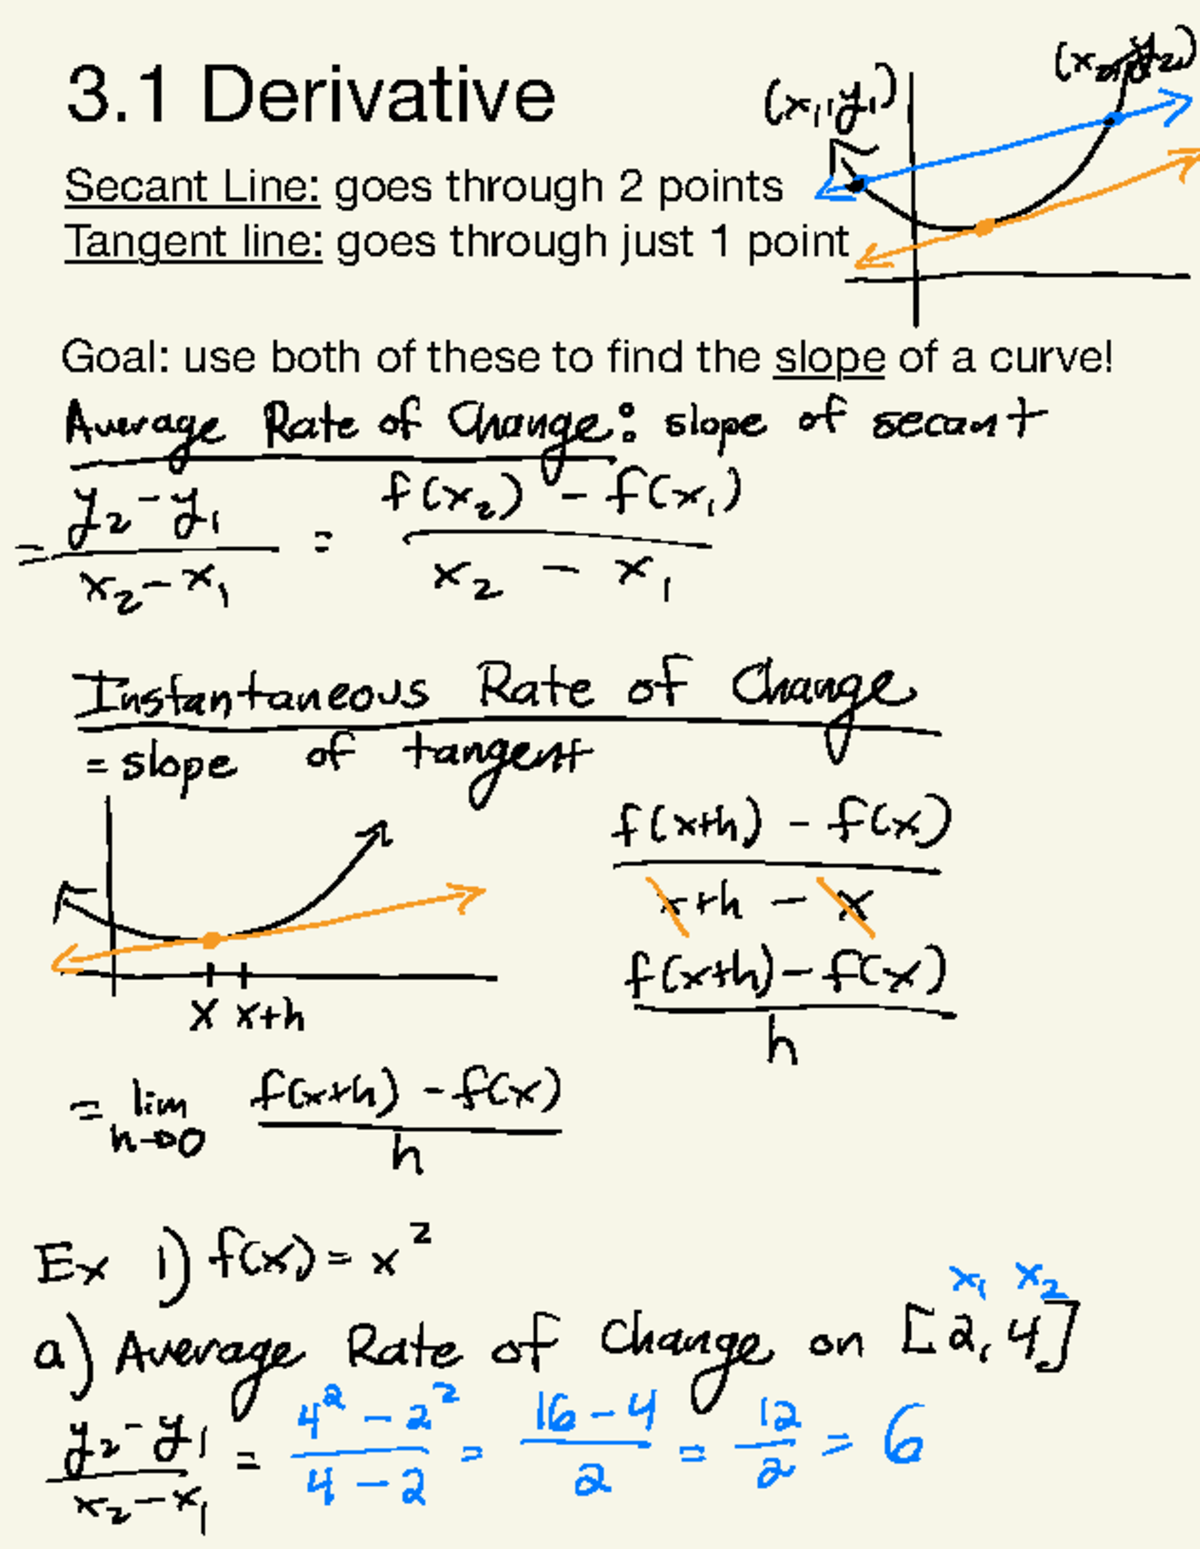 3.1 Derivative
(x₁,y₁)
(x₂,y₂)
Secant Line: goes through 2 points
Tangent line: goes through just 1 point
Goal: use both of these to find the slope of a curve!
Average Rate of Change: slope of secant
= (y₂-y₁)/(x₂-x₁) = (f(x₂) - f(x₁))/(x₂ - x₁)
Instantaneous Rate of Change
= slope of tangent
(f(x+h) - f(x))/(x+h - x)
(f(x+h) - f(x))/h
x x+h
= lim h→0 (f(x+h) - f(x))/h
Ex 1) f(x) = x²
x₁ x₂
a) Average Rate of Change on [2, 4]
(y₂-y₁)/(x₂-x₁) = (4² - 2²)/(4 - 2) = (16 - 4)/2 = 12/2 = 6